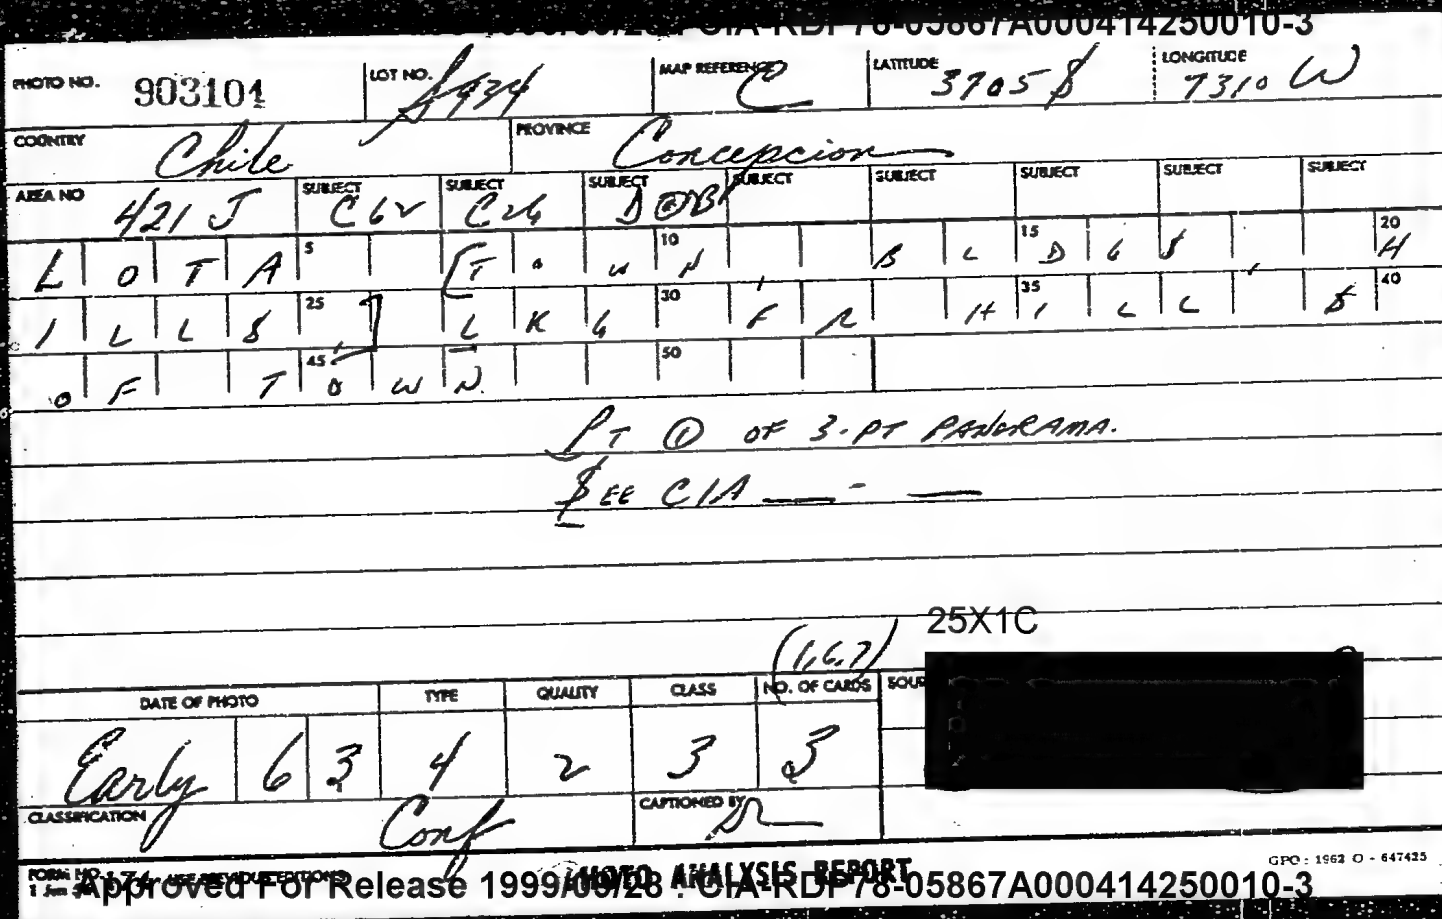 Approved For Release 1999/09/28 : CIA-RDP78-05867A000414250010-3
PHOTO NO. 903101 LOT NO. MAP REFERENCE C LATITUDE 3705 S LONGITUDE 7310 W
COUNTRY Chile PROVINCE Concepcion
AREA NO 421 J SUBJECT C62 SUBJECT C26 SUBJECT SUBJECT SUBJECT SUBJECT SUBJECT SUBJECT
LOTA 5 [TOWN 10, BLDGS 15, H 20
ILLS 25,] LKG 30 FR HILL 35 S 40
OF TOWN. 45 50
PT ① OF 3-PT PANORAMA.
SEE CIA ___ - ___
25X1C
(1,6,7)
DATE OF PHOTO TYPE QUALITY CLASS NO. OF CARDS
Early 63 4 2 3 3
CLASSIFICATION Conf CAPTIONED BY
FORM NO. USE PREVIOUS EDITIONS PHOTO ANALYSIS REPORT GPO : 1962 O - 647425
1 Jun
Approved For Release 1999/09/28 : CIA-RDP78-05867A000414250010-3